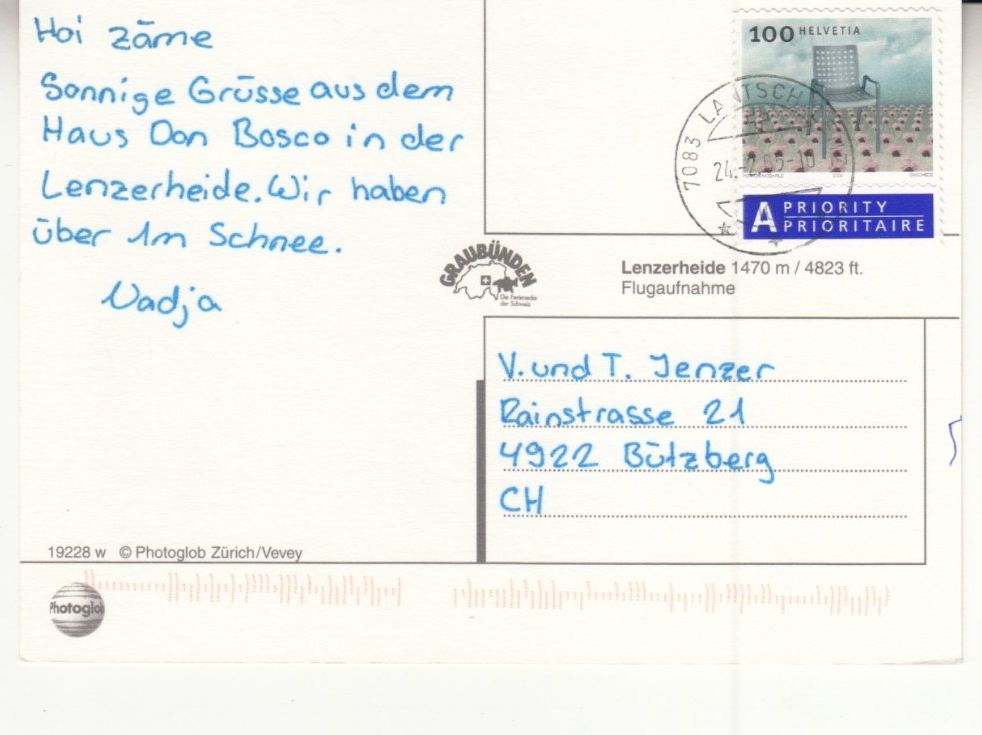 Hoi zäme
Sonnige Grüsse aus dem
Haus Don Bosco in der
Lenzerheide. Wir haben
über 1m Schnee.
Nadja
19228 w © Photoglob Zürich/Vevey
Photoglob
100 HELVETIA
7083 LANTSCH
24.-2.05-10
A PRIORITY
PRIORITAIRE
GRAUBÜNDEN
Die Ferienecke
der Schweiz
Lenzerheide 1470 m / 4823 ft.
Flugaufnahme
V. und T. Jenzer
Rainstrasse 21
4922 Bützberg
CH